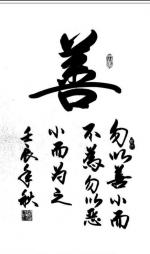 善
勿以善小而
不为勿以恶
小而为之
壬辰年秋